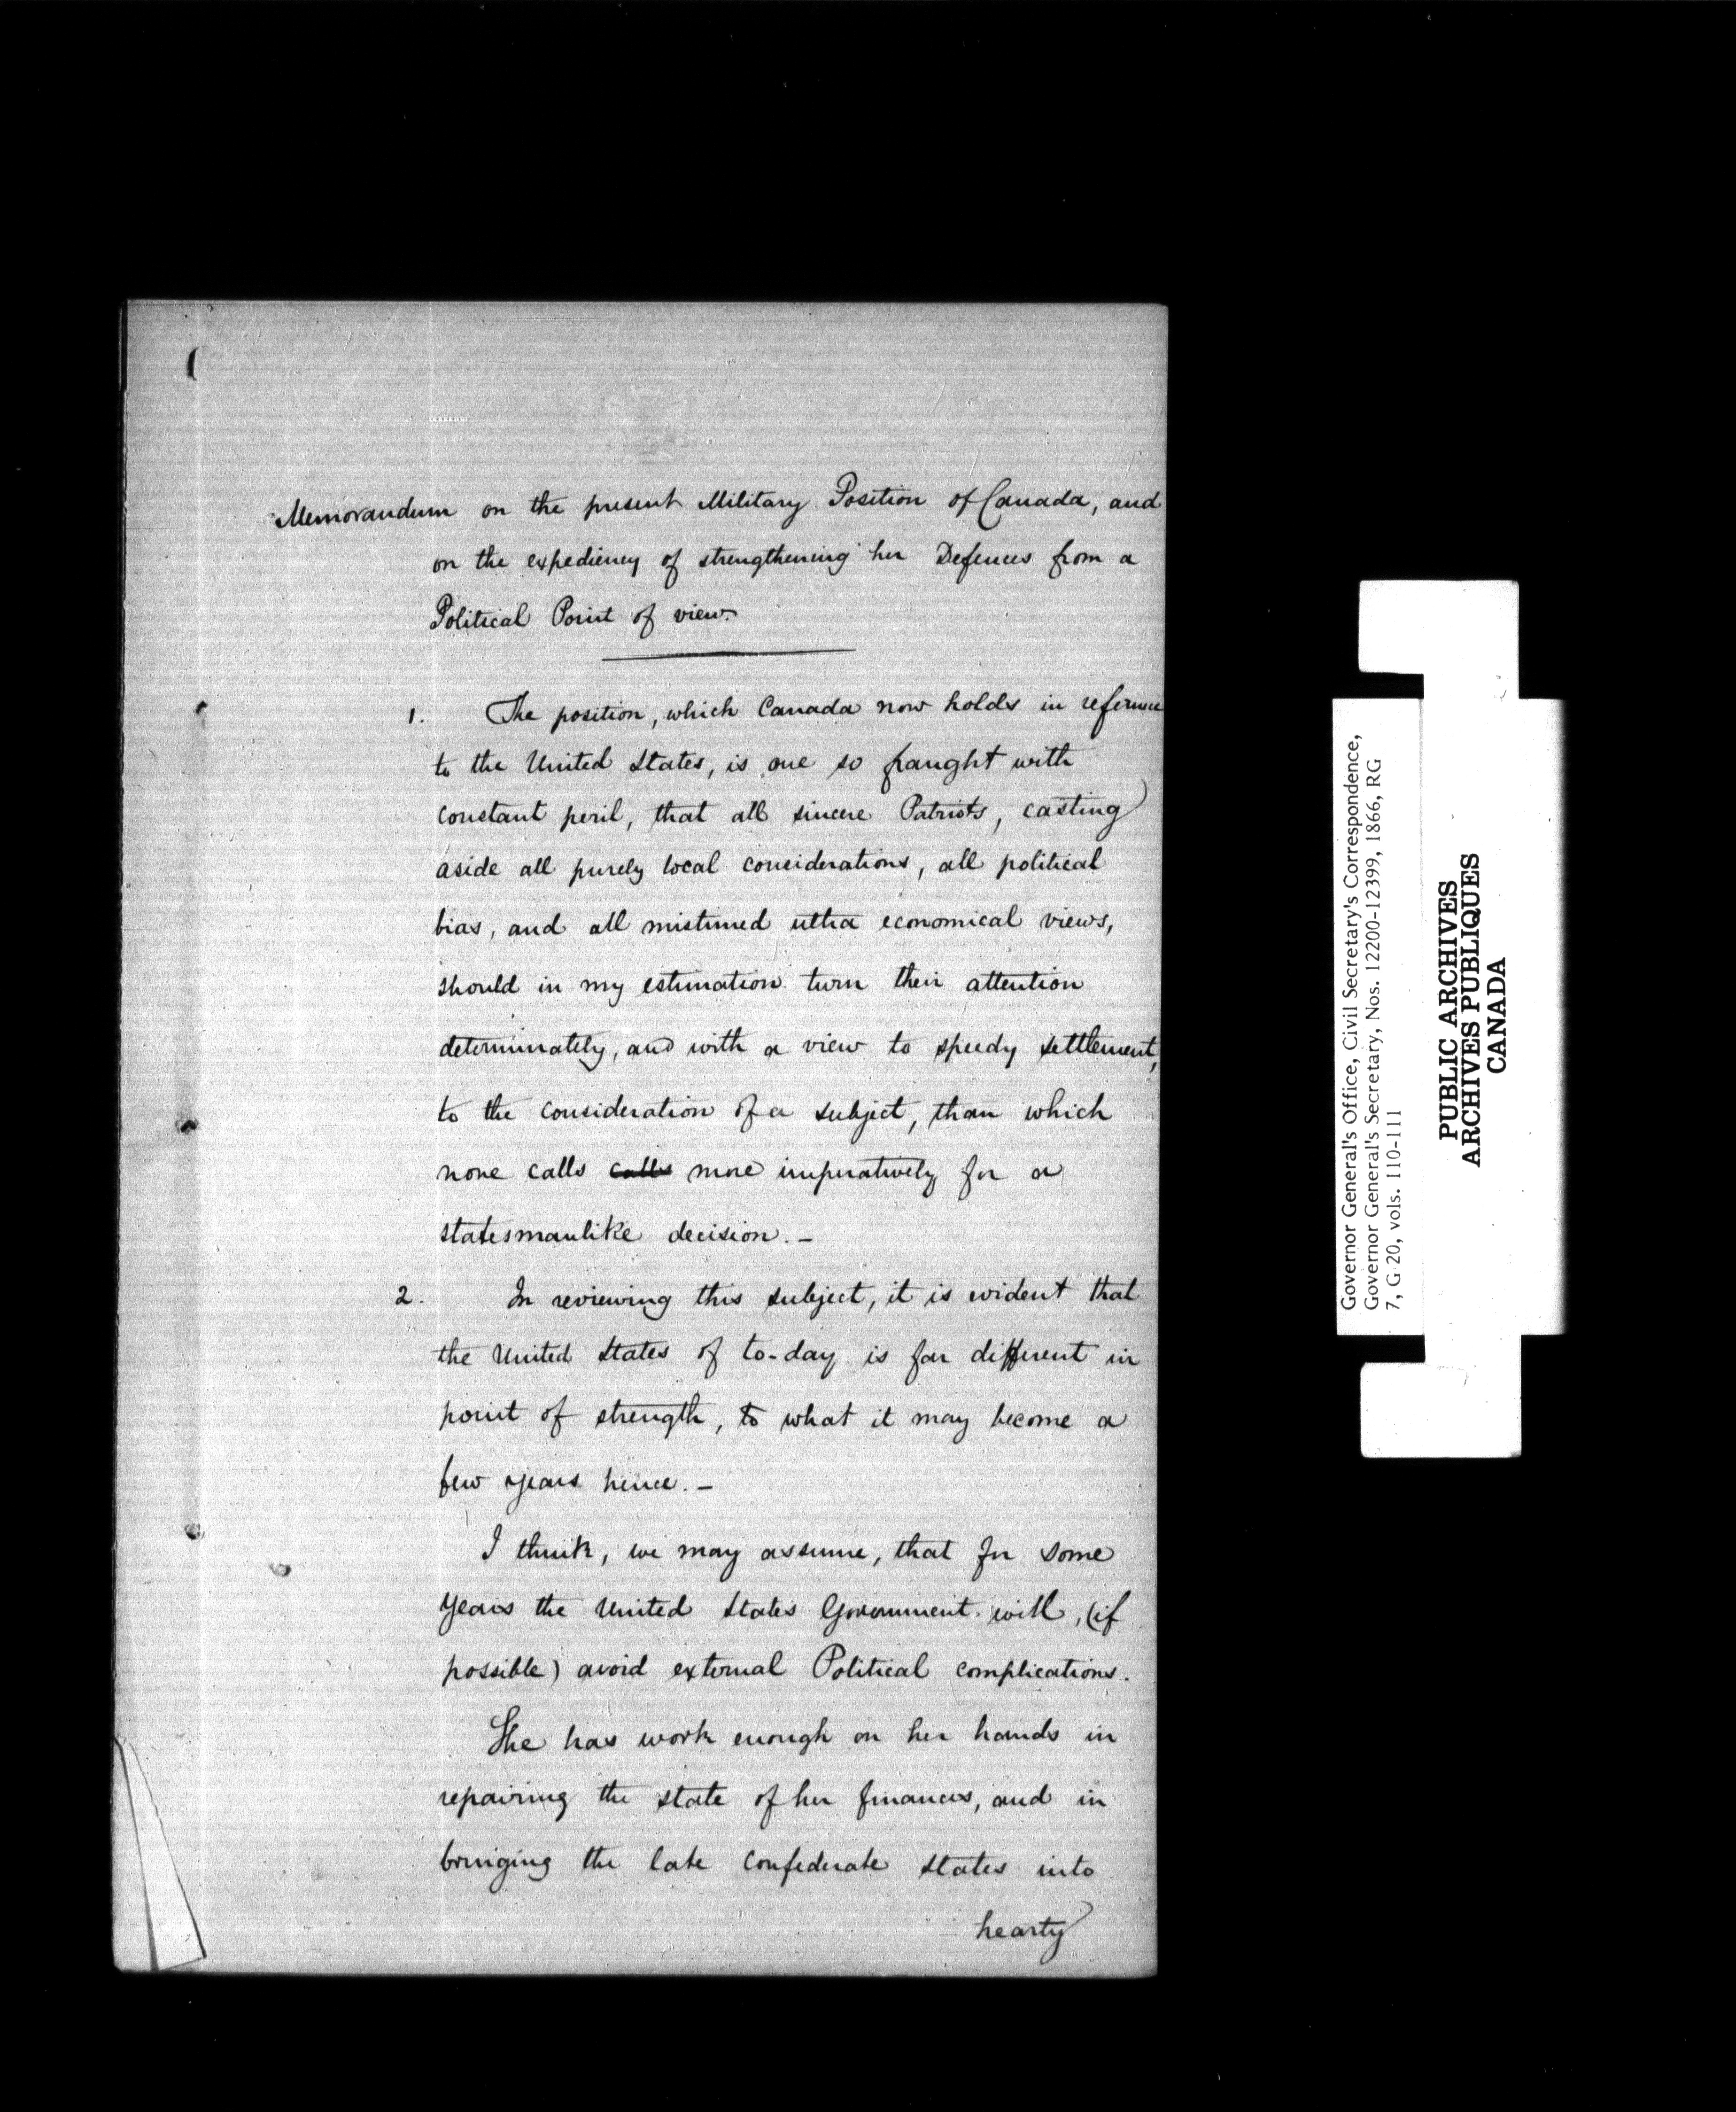 Memorandum on the present Military Position of Canada, and
on the expediency of strengthening her Defences from a
Political Point of view.
1. The position, which Canada now holds in reference
to the United States, is one so fraught with
constant peril, that all sincere Patriots, casting
aside all purely local considerations, all political
bias, and all mistimed ultra economical views,
should in my estimation turn their attention
determinately, and with a view to speedy settlement,
to the consideration of a subject, than which
none calls calls more imperatively for a
statesmanlike decision. –
2. In reviewing this subject, it is evident that
the United States of to-day is far different in
point of strength, to what it may become a
few years hence. –
I think, we may assume, that for some
years the United States Government will, (if
possible) avoid external Political complications.
She has work enough on her hands in
repairing the state of her finances, and in
bringing the late Confederate States into
hearty
Governor General's Office, Civil Secretary's Correspondence,
Governor General's Secretary, Nos. 12200-12399, 1866, RG
7, G 20, vols. 110-111
PUBLIC ARCHIVES
ARCHIVES PUBLIQUES
CANADA